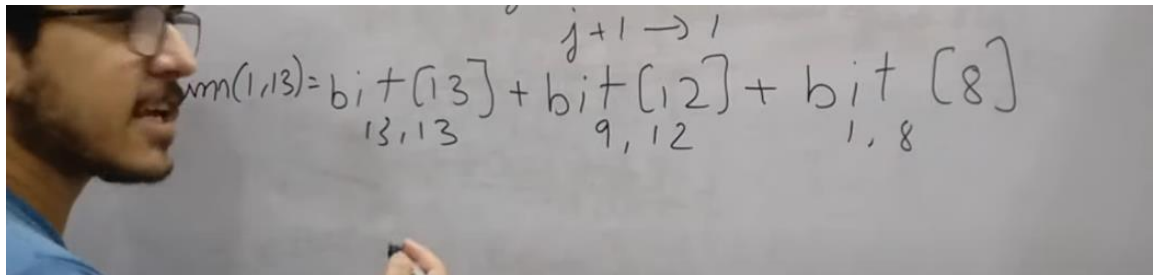 j+1 → 1
um(1,13)= bit[13] + bit[12] + bit [8]
13,13 9, 12 1, 8